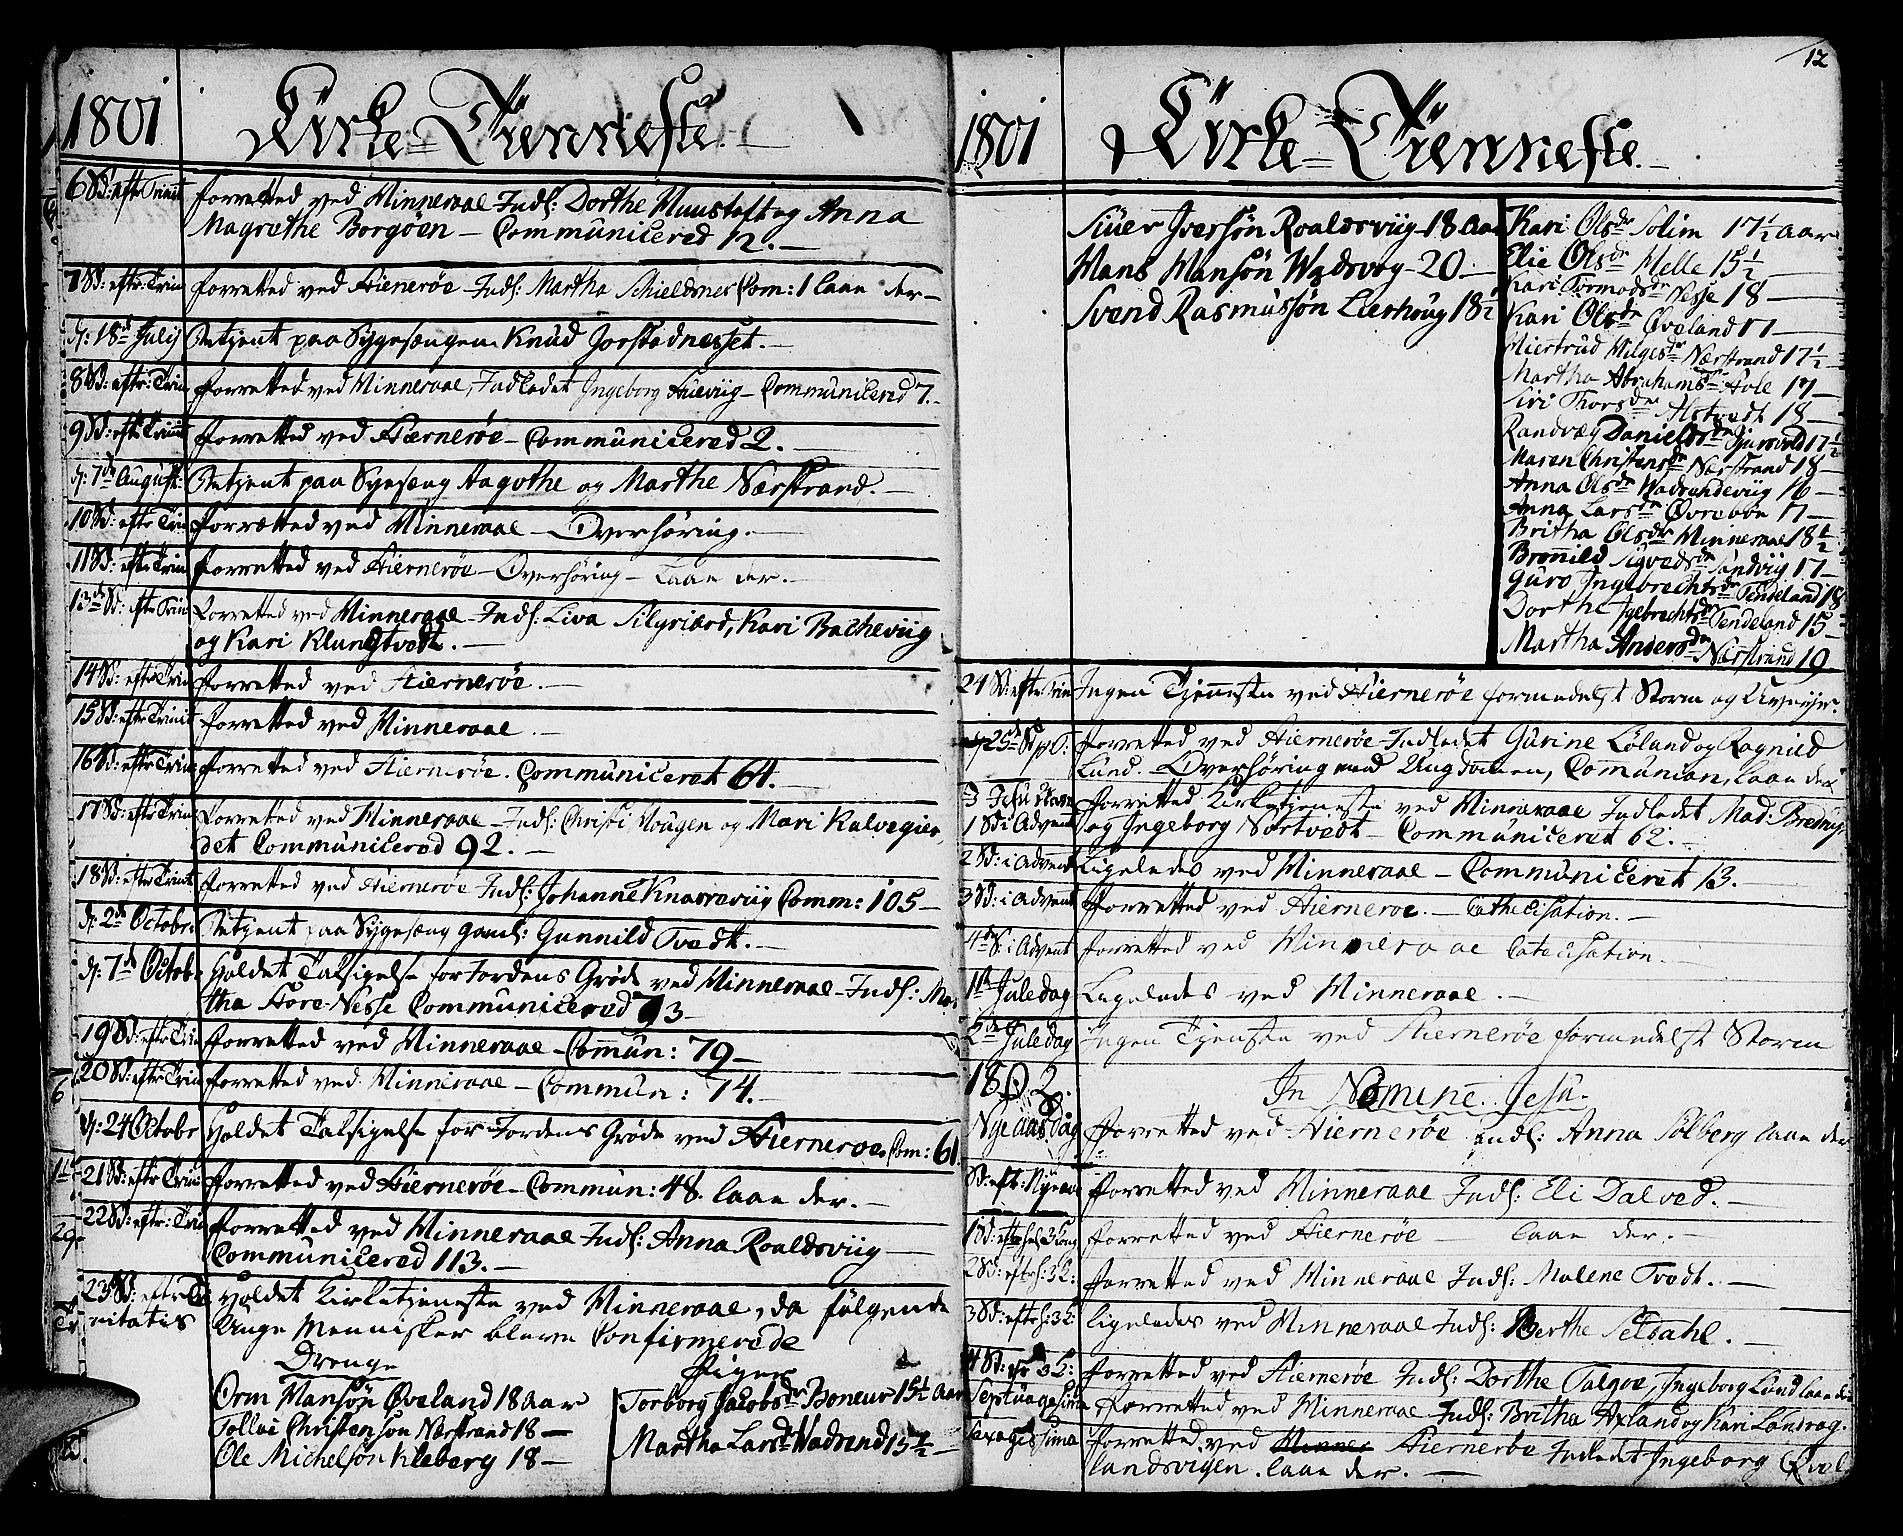 1801 Kirke-Tienneste.
6 Sd: eftr Trinit forretted ved Hinneraae Indl: Dorthe Huustoft og Anna
Magrethe Borgøen - Communicered 12.
7 Sd: eftr: Trin forretted ved Hiernerøe - Indl: Martha Schieldsnes Com: 1 laae der
d: 18de July Betjent paa Sygesængen Knud Jorstadnesset.
8 Sd: eftr: Trin forretted ved Hinneraae, Indledet Ingeborg Hueviig - Communicered 7.
9 Sd: eftr Trinit forretted ved Hiernerøe - Communicered 2.
d: 7de August: Betjent paa Sygesæng Aagothe og Marthe Nærstrand.
10 Sd: eftr Trin forretted ved Hinneraae - Overhøring.
11 Sd: eftr Trin forretted ved Hiernerøe - Overhøring - laae der.
13de Sd: eftr Trin forretted ved Hinneraae - Indl: Liva Silgiærd, Kari Bacheviig
og Kari Klungtvedt.
14 Sd: eftr Trin forretted ved Hiernerøe.
15 Sd: eftr Trinit forretted ved Hinneraae.
16 Sd: eftr Trin forretted ved Hiernerøe. Communiceret 64.
17 Sd: eftr Trin forretted ved Hinneraae - Indl: Christi Hougen og Mari Kalvegier
det Communicered 92.
18 Sd: eftr Trinit forretted ved Hiernerøe Indl: Johanne Knarreviig Comm: 105
d: 2de October: Betjent paa Sygesæng gaml: Gunnild Tvedt.
d: 7de Octob: Holdet Taksigelse for Jordens Grøde ved Hinneraae - Indl: Mar
tha Fore-Nesse Communicered 93
19 Sd: eftr Trin forretted ved Hinneraae - Commun: 79
20 Sd: eftr Trin forretted ved Hinneraae - Commun: 74.
d: 24 Octobr Holdet Taksigelse for Jordens Grøde ved Hiernerøe. Com: 61
21 Sd: eftr Trin: forretted ved Hiernerøe - Commun: 48. laae der.
22 Sd: eftr: Trin forretted ved Hinneraae Indl: Anna Roaldsviig
Communicered 113.
23 Sd: eftr Tri Holdet Kirketjeneste ved Hinneraae, da følgende
nitatis Unge Mennisker bleve Confirmerede
Drenge Piger
Orm Hansøn Øveland 18 aar Torborg Jacobsdr Boneur 15½ aar
Tollac Christensøn Nærstrand 18 Martha Larsdr Hadrend 15½
Ole Michelsøn Kleberg 18
12
1801 Kirke-Tienneste.
Siver Iversøn Roaldsviig 18 aar
Hans Hansøn Wadsvog 20
Svend Rasmussøn Lierhoug 18½
Kari Olsdr Solim 17½ aar
Elie Olsdr Helle 15½
Kari Tormodsdr Nesse 18
Kari Olsdr Øveland 17
Giertrud Helgesdr Nærstrand 17½
Martha Abrahamsdr Hole 17
Siri Thorsdr Alstvedt 18
Randvæg Danielsdr 17½
Maren Christensdr Nærstrand 18
Anna Olsdr 16
Anna Larsdr Øvrebøe 17
Britha Olsdr Hinneraae 18½
Bronild Sigvedsdr Sandviig 17
Guro Ingebrechtsdr Tendeland 18
Dorthe Ingebrechtsdr Tendeland 15
Martha Andersdr Nærstrand 19
24 Sd: eftr Trin Ingen Tjenneste ved Hiernerøe formedelst Storm og Uveyr.
forretted ved Hiernerøe Indledet Gurine Løland og Ragnild
Lund. - Overhøring med Ungdommen, Communion, laae der
1 Sd: i Advent forretted Kirketjeneste ved Hinneraae Indledet Mad: Bredrup
og Ingeborg Nortvedt - Communiceret 62.
2 Sd: i Advent Ligeledes ved Hinneraae - Communiceret 13.
3 Sd: i Advent forretted ved Hiernerøe. - Cathecisation.
4de S: i Advent forretted ved Hinneraae Catecisation.
1ste Juledag Ligeledes ved Hinneraae.
2de Juledag Ingen Tjeneste ved Hiernerøe formedelst Storm
1802. In Nomine Jesu.
Nye aarsdag forretted ved Hiernerøe Indl: Anna Solberg laae der
Sd: eft: Nyeaar forretted ved Hinneraae Indl: Eli Dalved.
1 Sd: eftr hel 3 Kong forretted ved Hiernerøe - laae der.
2 Sd: eftr h: 3 K: forretted ved Hinneraae Indl: Malene Tvedt.
3 Sd: eftr h: 3 K: Ligeledes ved Hinneraae Indl: Berthe Selsahl.
4 Sd: 3 K: forretted ved Hiernerøe Indl: Dorthe Talgøe, Ingeborg Lund laae der
Septuagesima forretted ved Hinneraae Indl: Britha Axland og Kari Landvag.
Sexagissima forretted ved Hiernerøe Indledet Ingeborg Qvol
landsvigen. laae der.